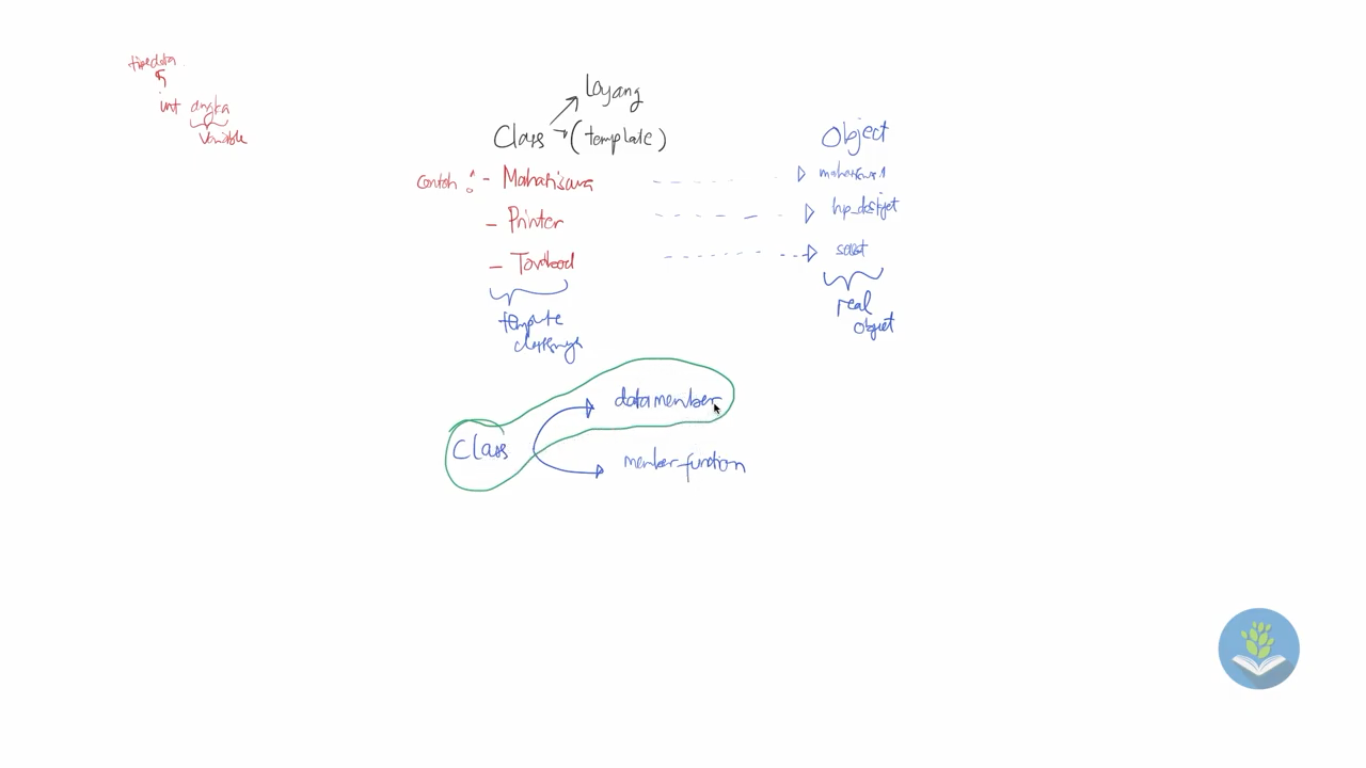 tipe data
int angka
variable
Loyang
Class (template)
Object
Contoh : - Mahasiswa
mahasiswa1
- Printer
hp_deskjet
-
template
classnya
real
object
data member
Class
member function